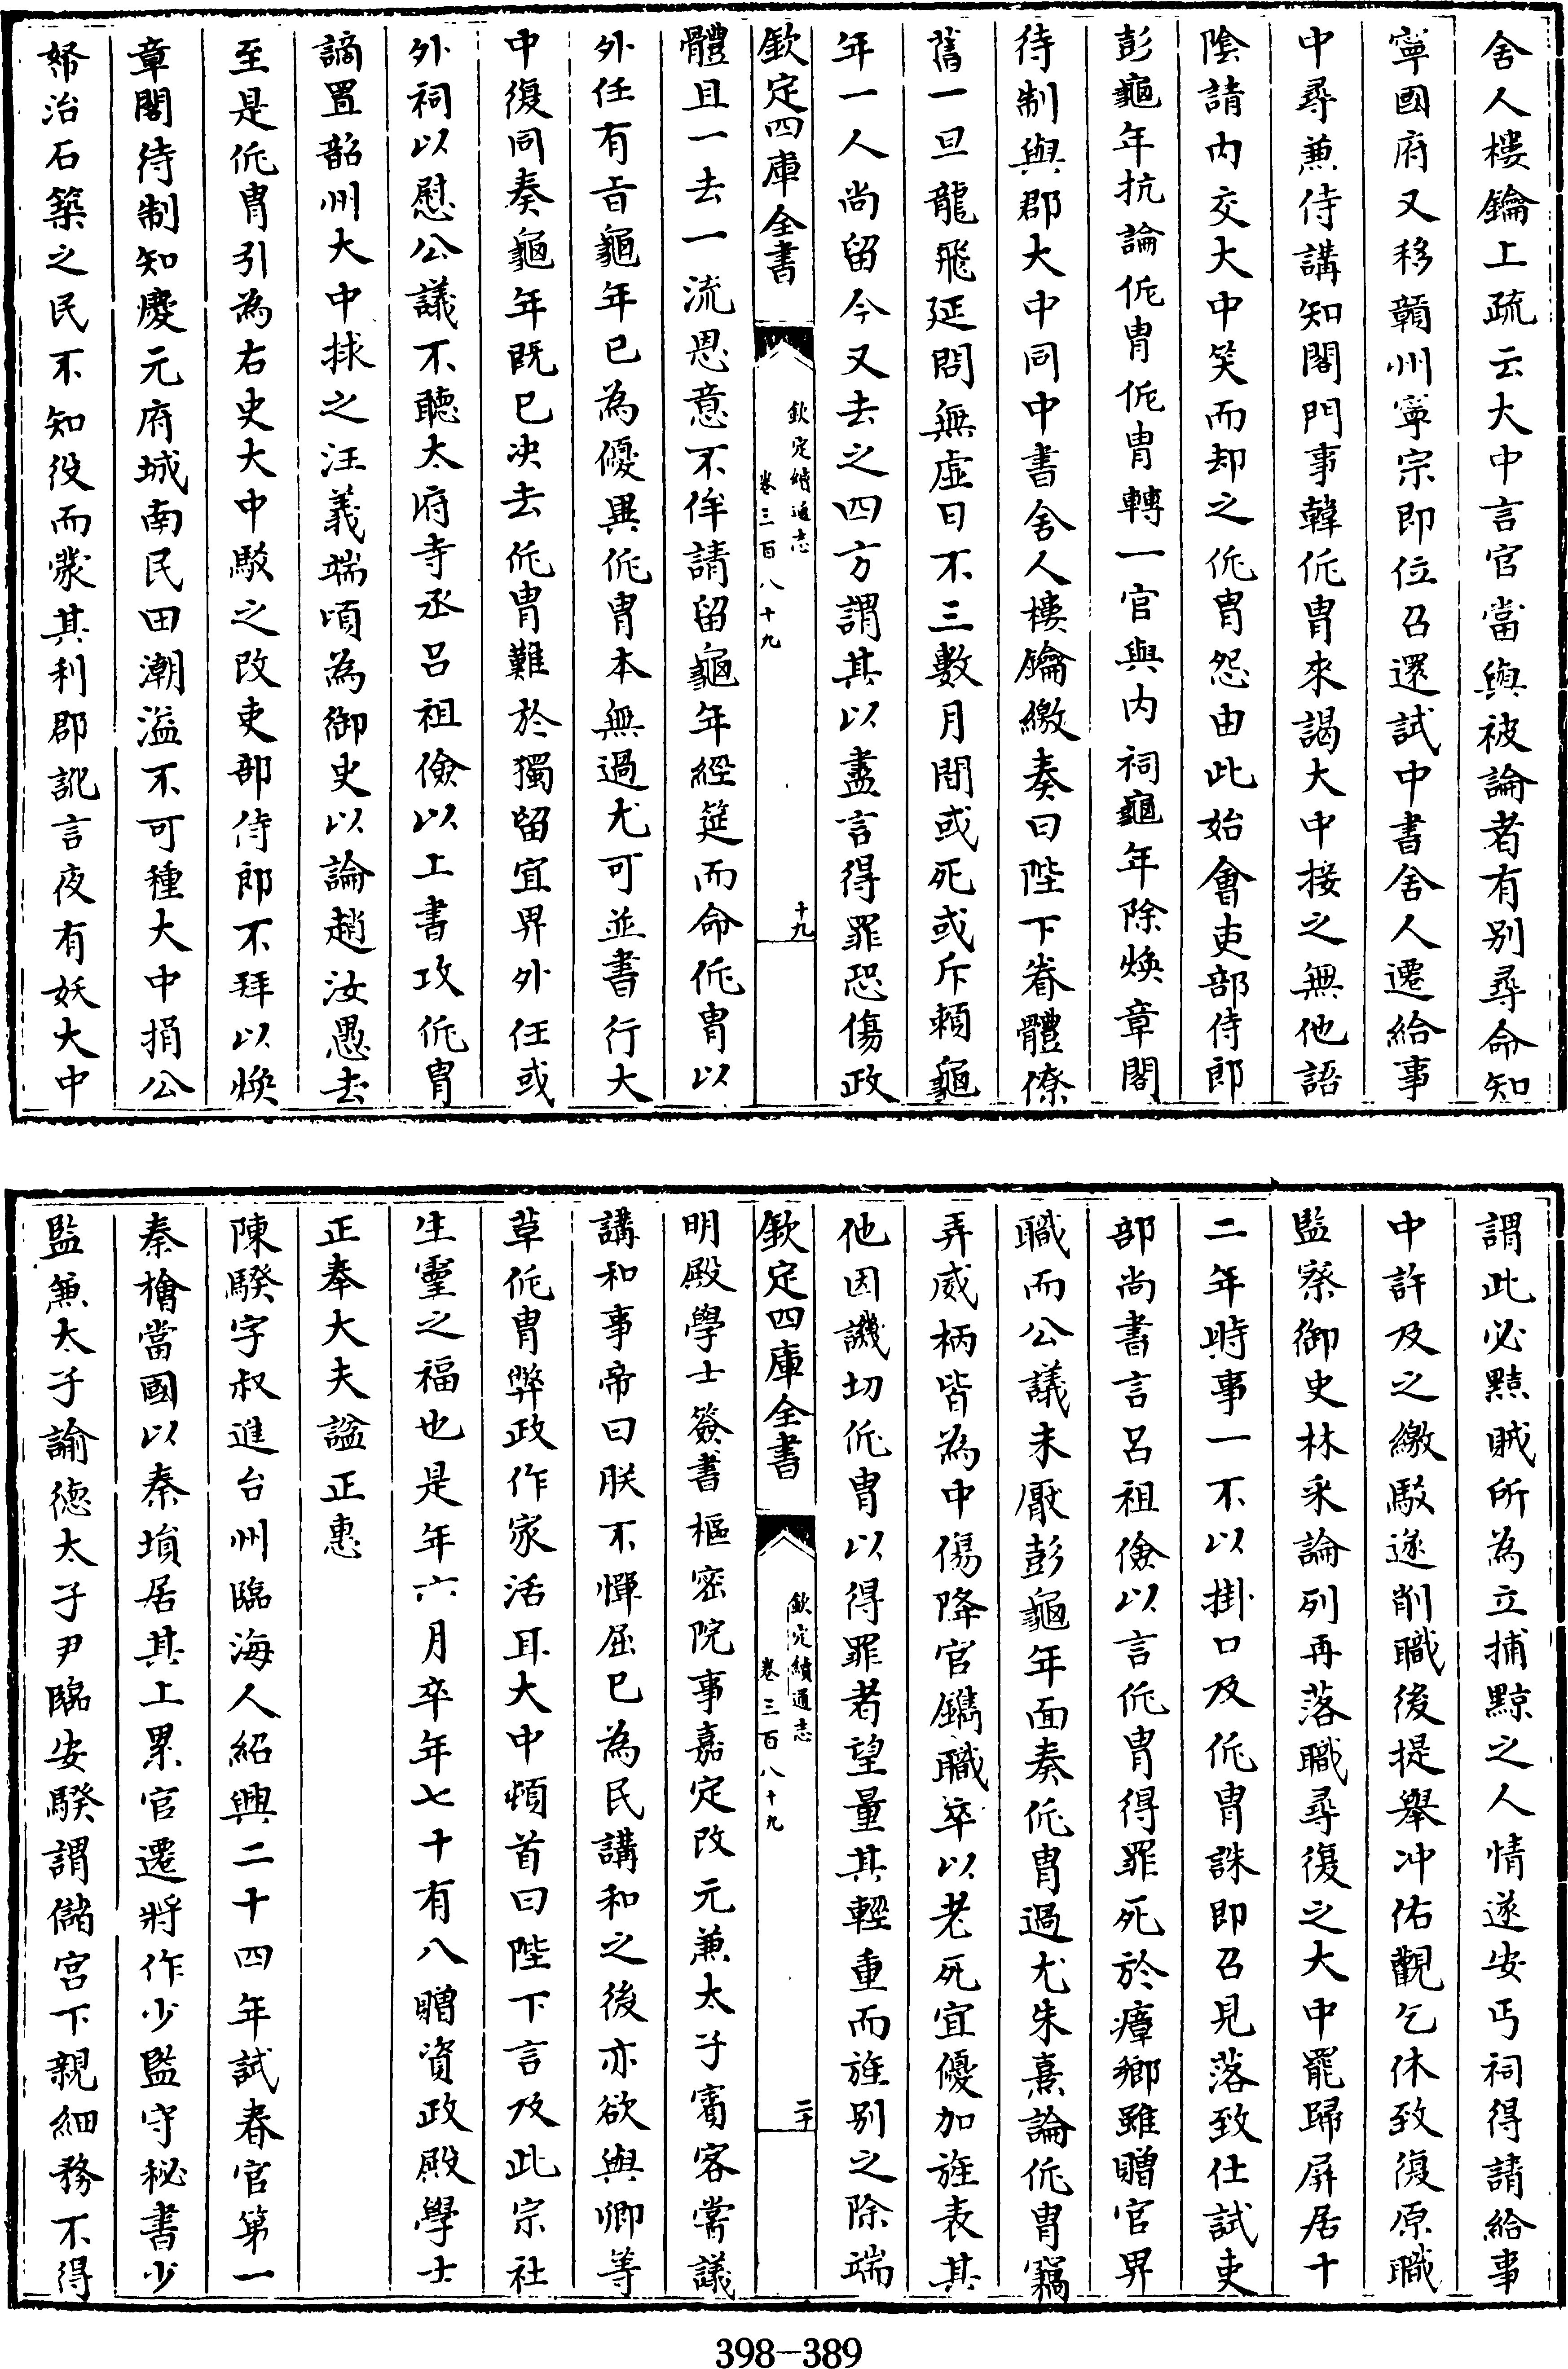 舍人樓鑰上疏云大中言官當與被論者有别尋命知
寧國府又移贛州寧宗即位召還試中書舍人遷給事
中尋兼侍講知閣門事韓侂胄來謁大中接之無他語
陰請内交大中笑而却之侂胄怨由此始會吏部侍郎
彭龜年抗論侂胄侂胄轉一官與内祠龜年除煥章閣
待制與郡大中同中書舍人樓鑰繳奏曰陛下眷禮僚
舊一旦龍飛延問無虚日不三數月間或死或斥賴龜
年一人尚留今又去之四方謂其以盡言得罪恐傷政
欽定四庫全書
欽定續通志
卷三百八十九
十九
體且一去一流恩意不侔請留龜年經筵而命侂胄以
外任有旨龜年已為優異侂胄本無過尤可並書行大
中復同奏龜年既已决去侂胄難於獨留宜畀外任或
外祠以慰公議不聽太府寺丞呂祖儉以上書攻侂胄
謫置韶州大中捄之汪義端頃為御史以論趙汝愚去
至是侂胄引為右史大中駁之改吏部侍郎不拜以煥
章閣待制知慶元府城南民田潮溢不可種大中捐公
帑治石築之民不知役而蒙其利郡訛言夜有妖大中
謂此必黠賊所為立捕黥之人情遂安丐祠得請給事
中許及之繳駁遂削職後提舉冲佑觀乞休致復原職
監察御史林采論列再落職尋復之大中罷歸屏居十
二年時事一不以掛口及侂胄誅即召見落致仕試吏
部尚書言呂祖儉以言侂胄得罪死於瘴鄉雖贈官畀
職而公議未厭彭龜年面奏侂胄過尤朱熹論侂胄竊
弄威柄皆為中傷降官鐫職卒以老死宜優加旌表其
他因譏切侂胄以得罪者望量其輕重而旌别之除端
欽定四庫全書
欽定續通志
卷三百八十九
二十
明殿學士簽書樞密院事嘉定改元兼太子賓客嘗議
講和事帝曰朕不憚屈已為民講和之後亦欲與卿等
草侂胄弊政作家活耳大中頓首曰陛下言及此宗社
生靈之福也是年六月卒年七十有八贈資政殿學士
正奉大夫諡正惠
陳騤字叔進台州臨海人紹興二十四年試春官第一
秦檜當國以秦塤居其上累官遷將作少監守秘書少
監兼太子諭德太子尹臨安騤謂儲宫下親細務不得
398-389